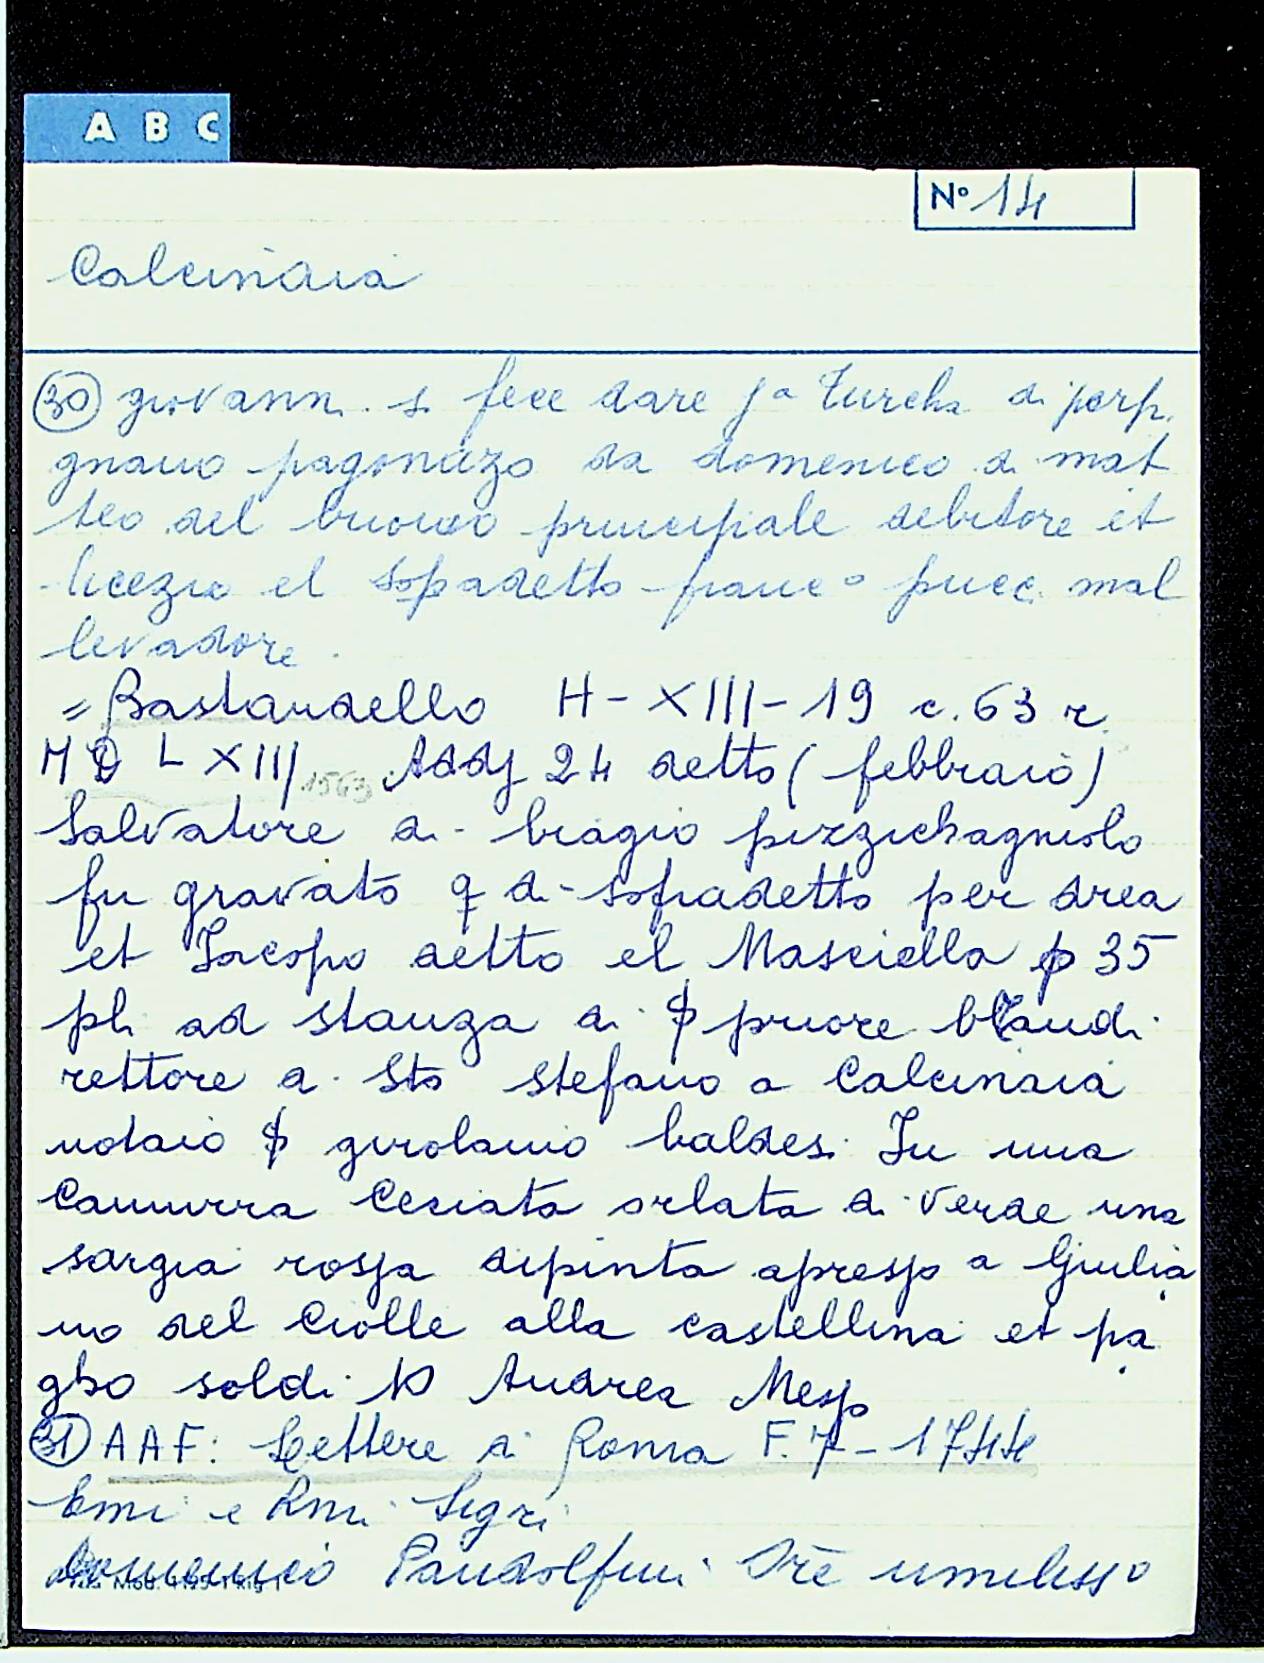 A B C
N° 14
Calcinaia
30 giovanni si fece dare 1a turcha di perpi
gnano pagonazo da domenico di mat
teo del principale debitore et
licezio el sopadetto franc° pucci mal
levadore.
= Bastardello H-XIII-19 c. 63 r
MDLXIII 1563 Addj 24 detto (febbraio)
Salvatore di biagio pizzichagniolo
fu gravato q di sopradetto per drea
et Jacopo detto el Masciella p 35
pli ad stanza di priore
rettore di Sto Stefano a Calcinaia
notaio girolamo baldesi In una
Cammurra orlata di verde una
sargia rossa dipinta apresso a Giulia
no del Ciolle alla castellina et pa
gho soldi 10 Andrea Messo
31 AAF: Lettere di Roma F. 7 - 1744
Emi e Rmi Sigri
Domenico Pandolfini Ore umilisso